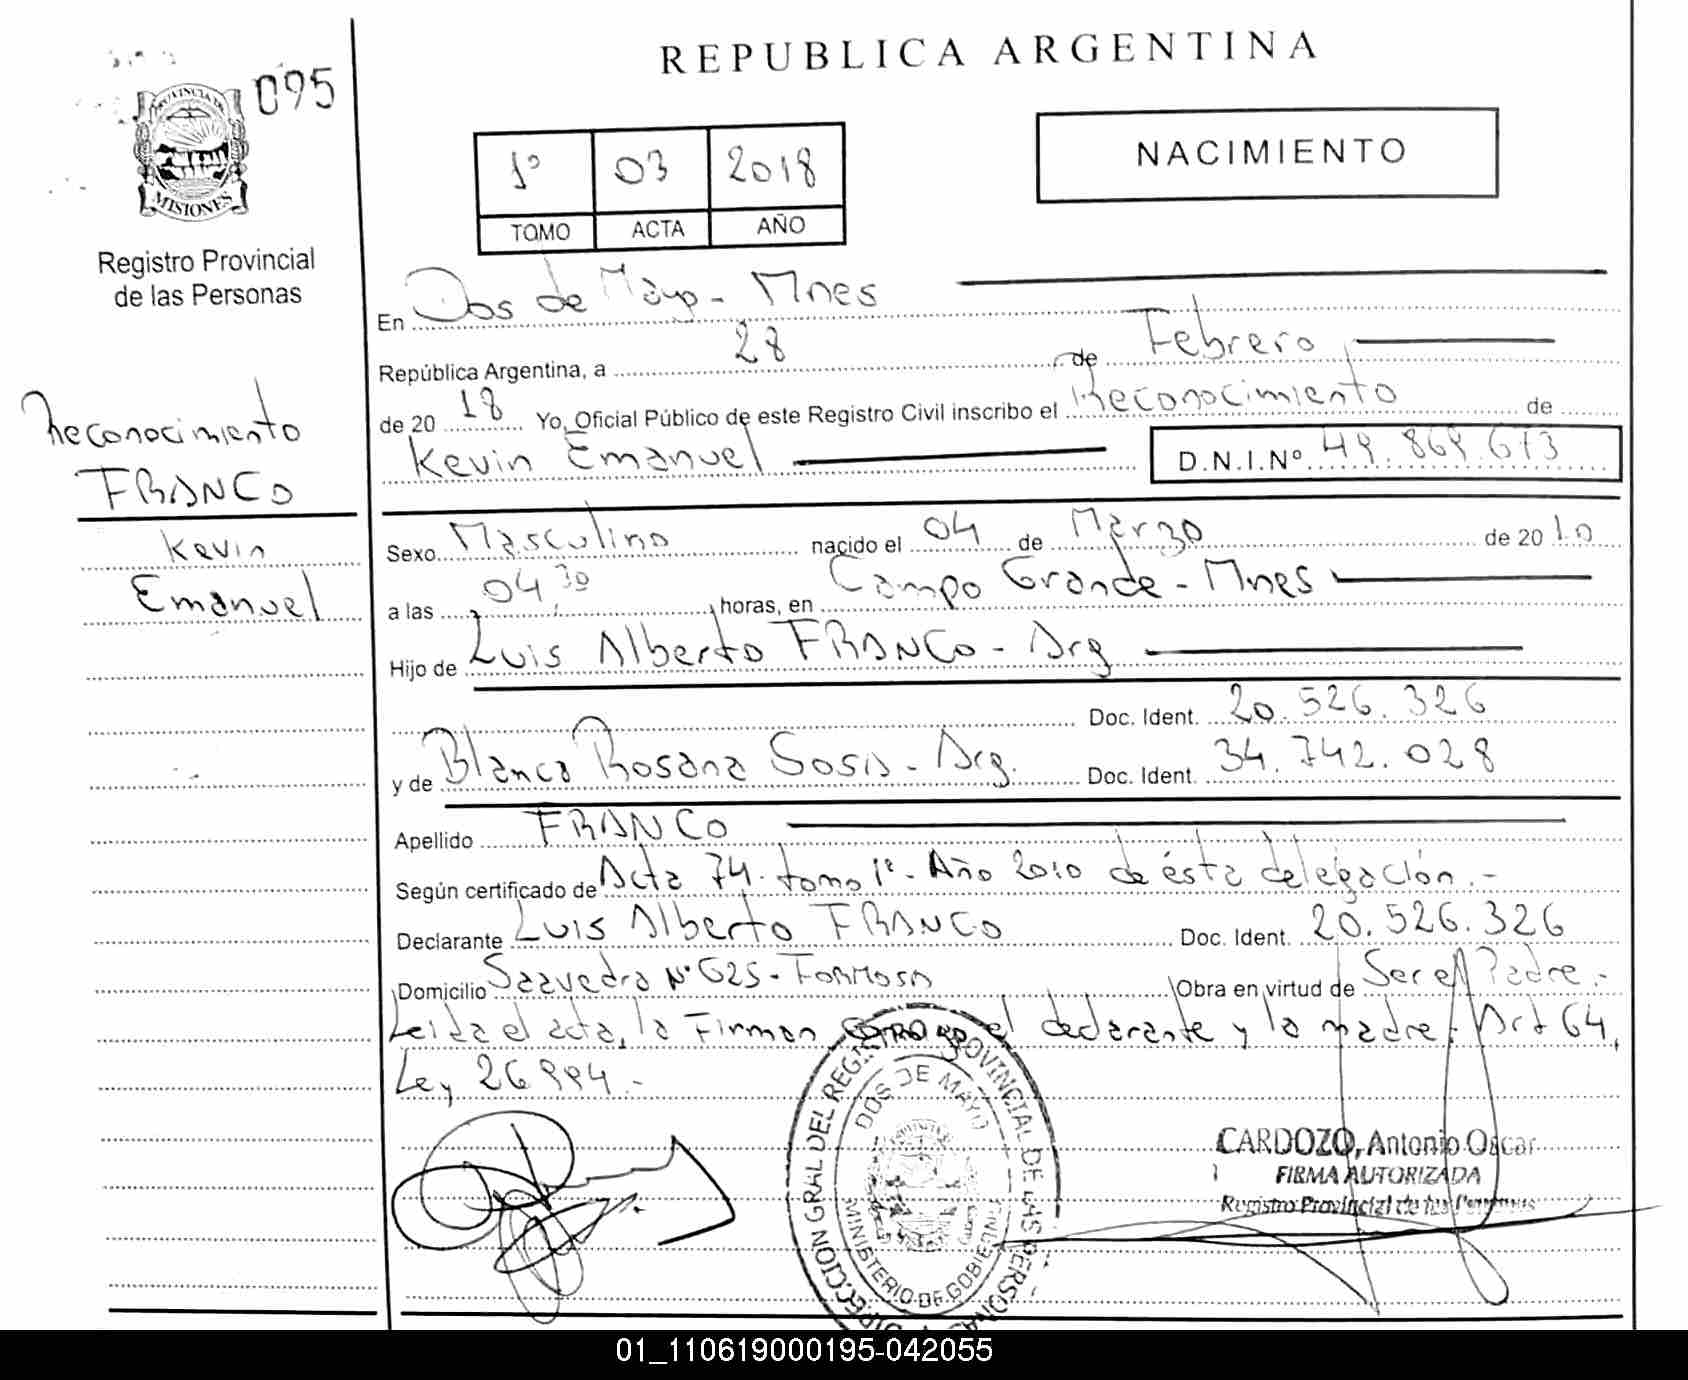 REPUBLICA ARGENTINA
095
PROVINCIA DE
MISIONES
Registro Provincial
de las Personas
1º 03 2018
TOMO ACTA AÑO
NACIMIENTO
En Dos de Mayo - Mnes
República Argentina, a 28 de Febrero
de 20 18 Yo, Oficial Público de este Registro Civil inscribo el Reconocimiento de
Kevin Emanuel D.N.I.Nº 49.869.673
Reconocimiento
FRANCO
Kevin
Emanuel
Sexo Masculino nacido el 04 de Marzo de 20 10
a las 04,30 horas, en Campo Grande - Mnes
Hijo de Luis Alberto FRANCO - Arg
Doc. Ident. 20.526.326
y de Blanca Rosana Sosa - Arg. Doc. Ident. 34.742.028
Apellido FRANCO
Según certificado de Acta 74. tomo 1º - Año 2010 de ésta delegación.-
Declarante Luis Alberto FRANCO Doc. Ident. 20.526.326
Domicilio Saavedra Nº 625 - Formosa Obra en virtud de Ser el Padre.-
Leída el acta, la Firman el declarante y la madre. Art 64,
Ley 26.994.-
DIRECCION GRAL DEL REGISTRO PROVINCIAL DE LAS PERSONAS
DOS DE MAYO
MINISTERIO DE GOBIERNO
CARDOZO, Antonio Oscar
FIRMA AUTORIZADA
Registro Provincial de las Personas
01_110619000195-042055